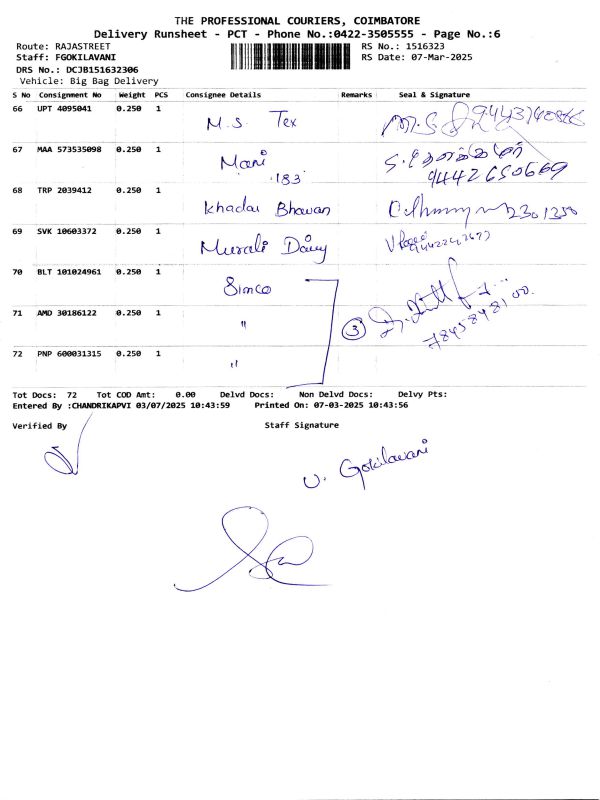 THE PROFESSIONAL COURIERS, COIMBATORE
Delivery Runsheet - PCT - Phone No.:0422-3505555 - Page No.:6
Route: RAJASTREET RS No.: 1516323
Staff: FGOKILAVANI RS Date: 07-Mar-2025
DRS No.: DCJB151632306
Vehicle: Big Bag Delivery
S No Consignment No Weight PCS Consignee Details Remarks Seal & Signature
66 UPT 4095041 0.250 1 M.S. Tex M.S.
67 MAA 573535098 0.250 1 Mani
183 9442650669
68 TRP 2039412 0.250 1 Khadai Bhavan 2301250
69 SVK 10603372 0.250 1 Murali Dairy
70 BLT 101024961 0.250 1 Simco
71 AMD 30186122 0.250 1 " 3 7845848100.
72 PNP 600031315 0.250 1 "
Tot Docs: 72 Tot COD Amt: 0.00 Delvd Docs: Non Delvd Docs: Delvy Pts:
Entered By :CHANDRIKAPVI 03/07/2025 10:43:59 Printed On: 07-03-2025 10:43:56
Verified By Staff Signature
U. Gokilavani